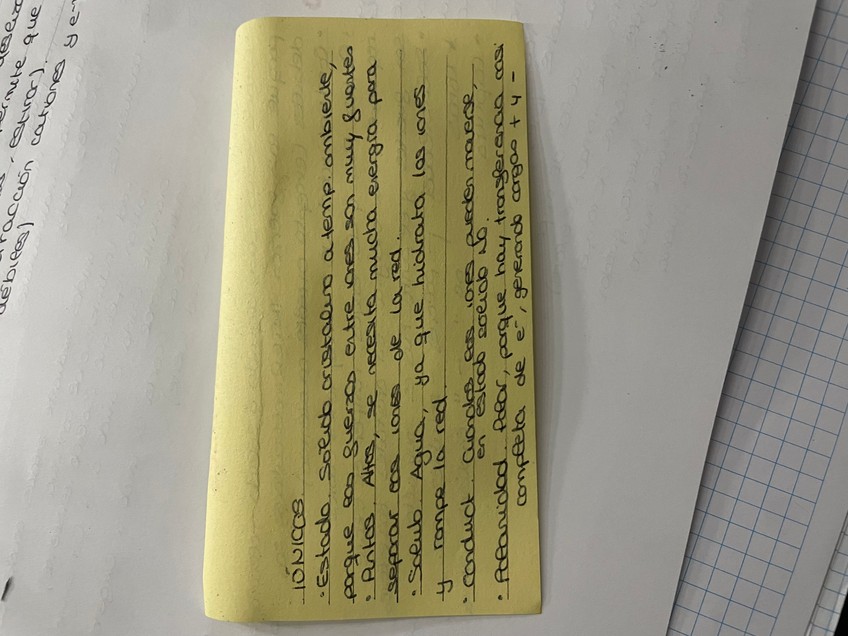 IÓNICOS
· Estado Sólido cristalino a temp. ambiente,
porque las fuerzas entre iones son muy fuertes
· Puntos Altos, se necesita mucha energía para
separar los iones de la red.
· Solub. Agua, ya que hidrata los iones
y rompe la red.
· Conduct. Cuando los iones pueden moverse,
en estado sólido NO.
· Polaridad. Polar, porque hay transferencia casi
completa de e⁻, generando cargas + y -
permite que
, estirar).
atracción cationes y e-
débiles)